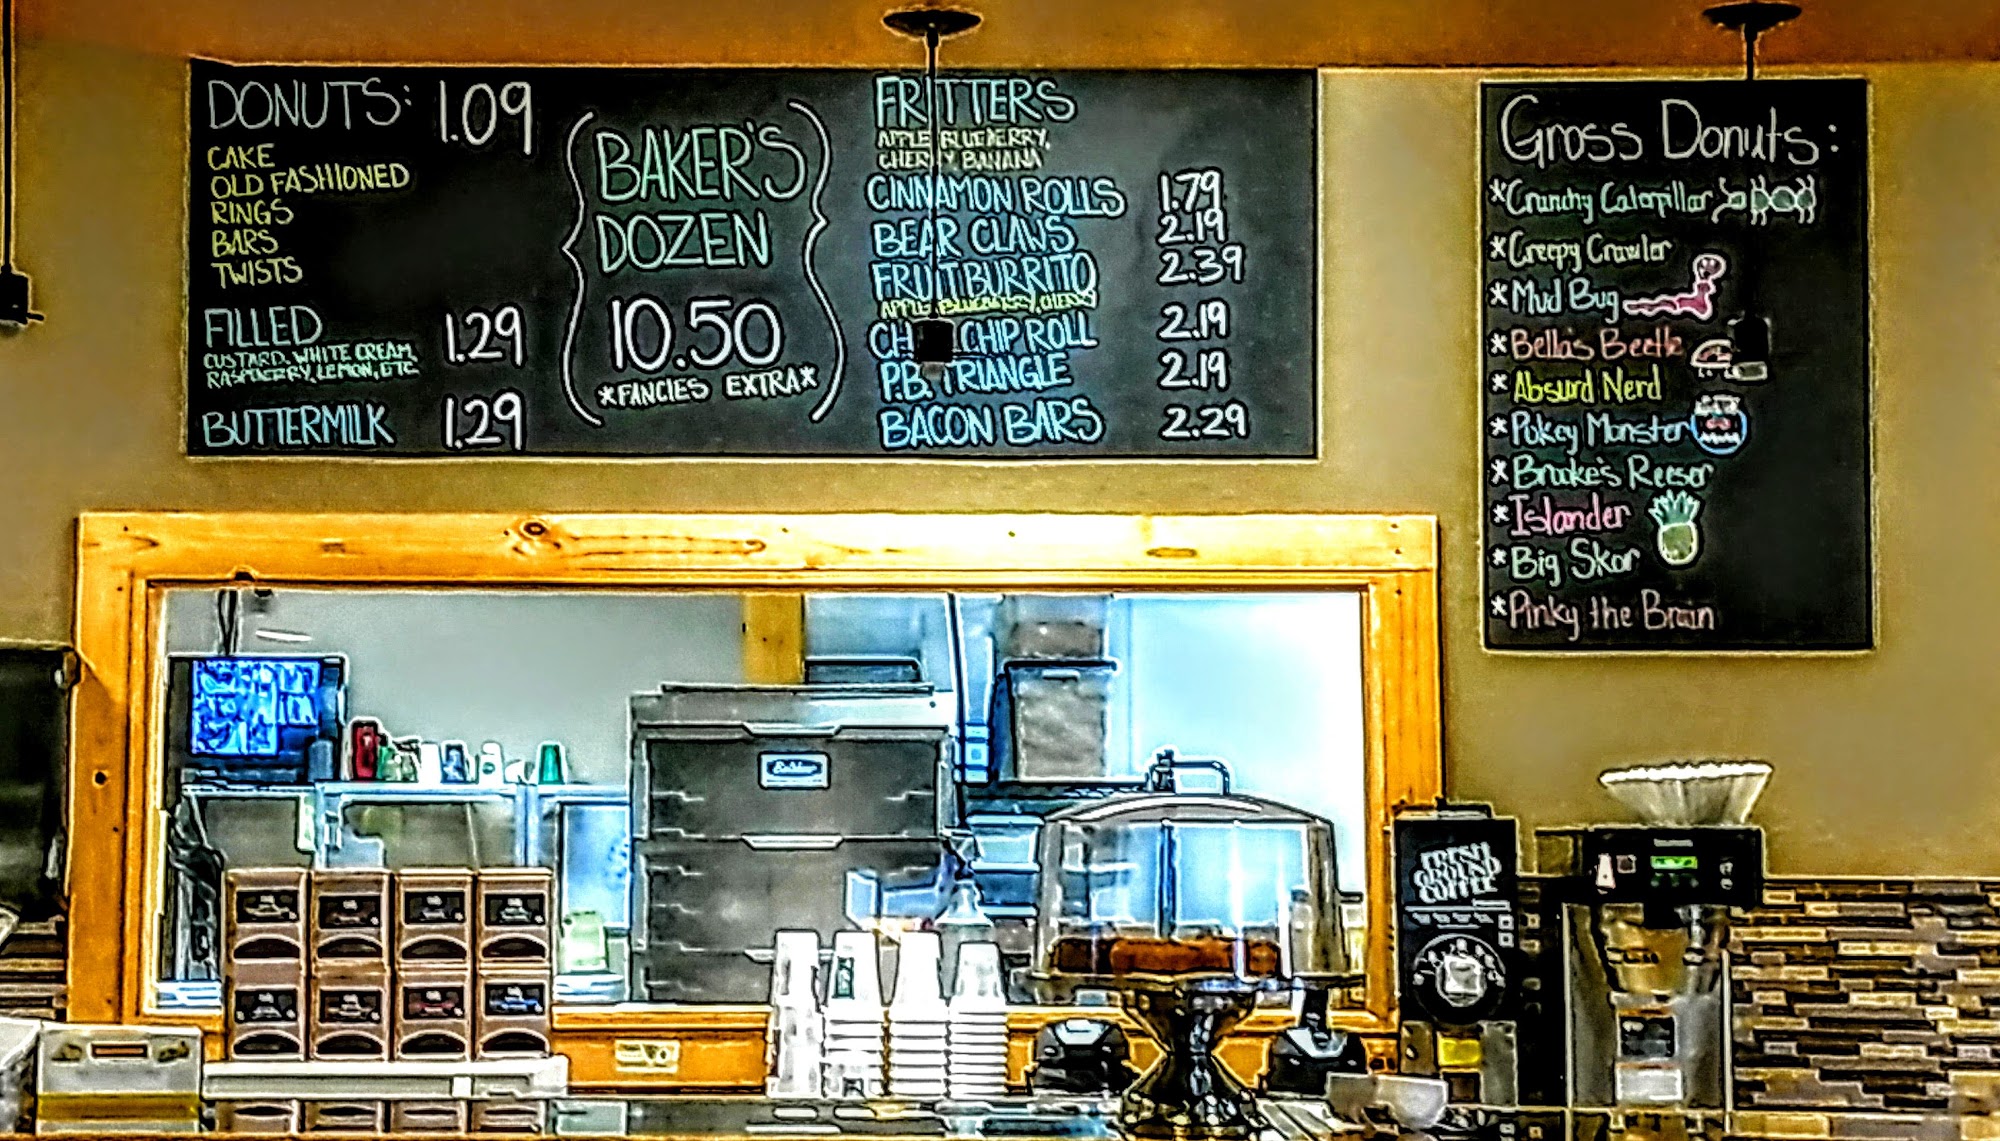 DONUTS: 1.09
CAKE
OLD FASHIONED
RINGS
BARS
TWISTS
FILLED 1.29
CUSTARD, WHITE CREAM,
RASPBERRY, LEMON, ETC
BUTTERMILK 1.29
BAKER'S
DOZEN
10.50
*FANCIES EXTRA*
FRITTERS
APPLE, BLUEBERRY,
CHERRY, BANANA
CINNAMON ROLLS 1.79
BEAR CLAWS 2.19
FRUIT BURRITO 2.39
APPLE, BLUEBERRY, CHERRY
CHIP ROLL 2.19
P.B. TRIANGLE 2.19
BACON BARS 2.29
Gross Donuts:
*Crunchy Caterpillar
*Creepy Crawler
*Mud Bug
*Bella's Beetle
*Absurd Nerd
*Pokey Monster
*Brooke's Reeser
*Islander
*Big Skor
*Pinky the Brain
FRESH
GROUND
COFFEE